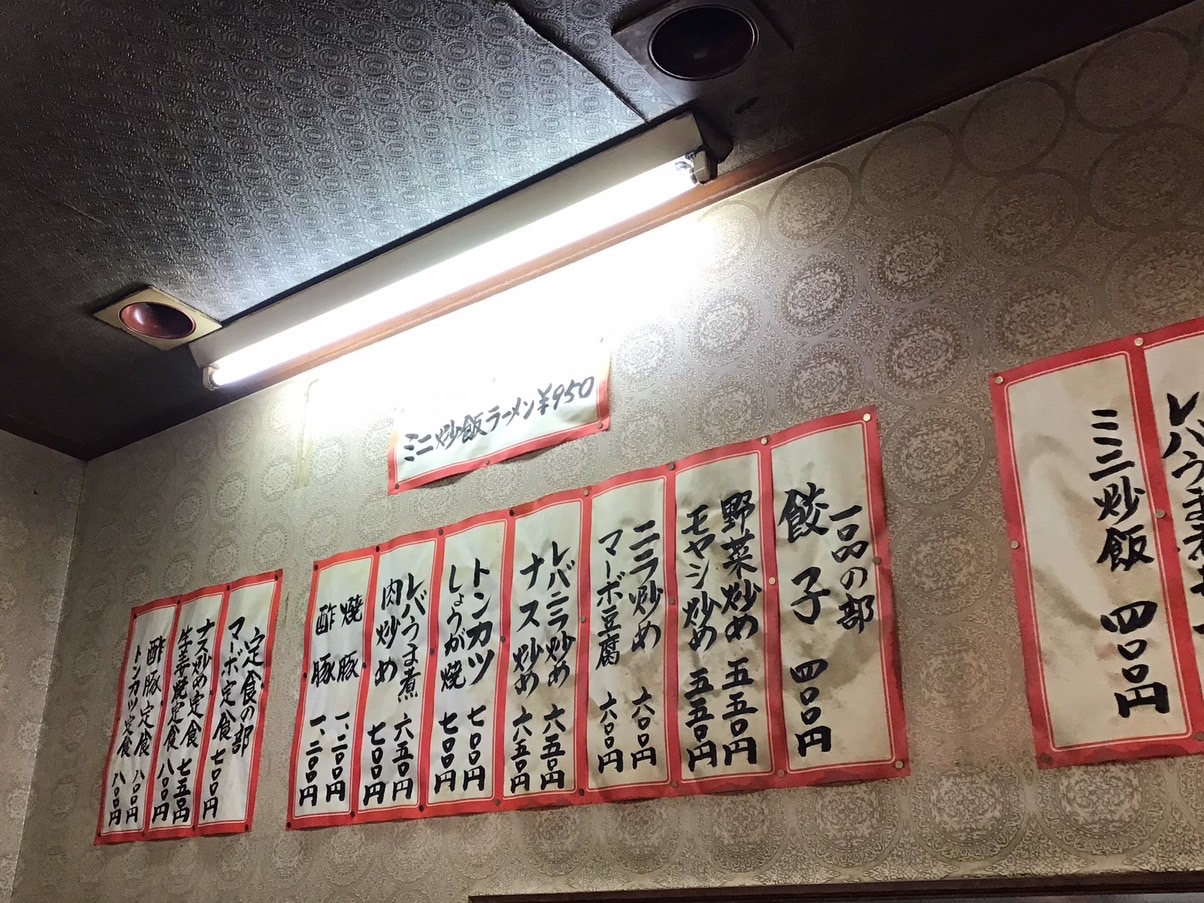 ミニ炒飯ラーメン¥950
ミニ炒飯 四〇〇円
一品の部
餃子 四〇〇円
野菜炒め 五五〇円
モヤシ炒め 五五〇円
ニラ炒め 六〇〇円
マーボ豆腐 六〇〇円
レバニラ炒め 六五〇円
ナス炒め 六五〇円
トンカツ 七〇〇円
しょうが焼 七〇〇円
レバうま煮 六五〇円
肉炒め 七〇〇円
焼豚 一、二〇〇円
酢豚 一、二〇〇円
定食の部
マーボ定食 七〇〇円
ナス炒め定食 七五〇円
生姜焼定食 八〇〇円
酢豚定食 八〇〇円
トンカツ定食 八〇〇円